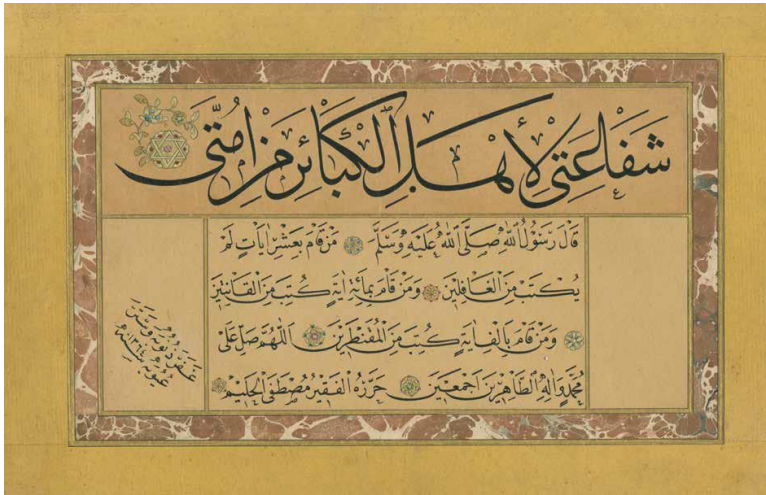 شَفَاعَتِي لِأَهْلِ الْكَبَائِرِ مِنْ اُمَّتِي
قَالَ رَسُولُ اللّٰهِ صَلَّى اللّٰهُ عَلَيْهِ وَسَلَّمَ مَنْ قَامَ بِعَشْرِ اٰيَاتٍ لَمْ
يُكْتَبْ مِنَ الْغَافِلِينَ وَمَنْ قَامَ بِمِائَةِ اٰيَةٍ كُتِبَ مِنَ الْقَانِتِينَ
وَمَنْ قَامَ بِاَلْفِ اٰيَةٍ كُتِبَ مِنَ الْمُقَنْطِرِينَ اَللّٰهُمَّ صَلِّ عَلَى
مُحَمَّدٍ وَاٰلِهِ الطَّاهِرِينَ اَجْمَعِينَ حَرَّرَهُ الْفَقِيرُ مُصْطَفَى الْحَلِيمُ
غفر ذنوبه وستر
عيوبه سنه